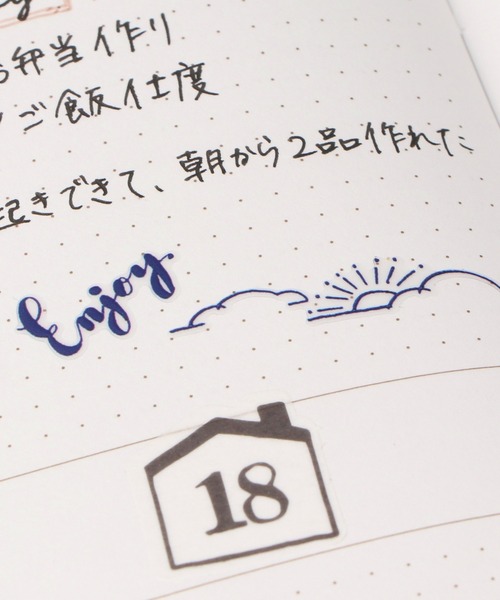 お弁当作り
ご飯仕度
起きできて、朝から2品作れた
Enjoy
18